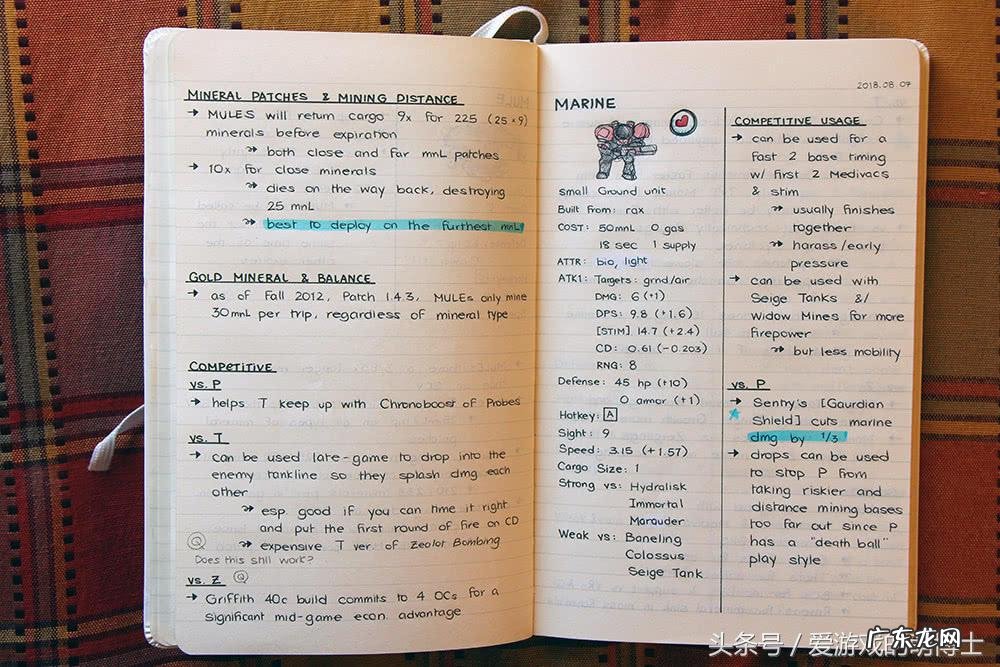 MINERAL PATCHES & MINING DISTANCE
→ MULES will return cargo 9x for 225 (25×9)
minerals before expiration
↠ both close and far mnl patches
→ 10x for close minerals
↠ dies on the way back, destroying
25 mnl
↠ best to deploy on the furthest mnl
GOLD MINERAL & BALANCE
→ as of Fall 2012, Patch 1.4.3, MULEs only mine
30mnl per trip, regardless of mineral type
COMPETITIVE
vs. P
→ helps T keep up with Chronoboost of Probes
vs. T
→ can be used late-game to drop into the
enemy tankline so they splash dmg each
other
↠ esp good if you can time it right
and put the first round of fire on CD
Q ↠ expensive T ver. of Zealot Bombing
Does this still work?
vs. Z Q
→ Griffith 40c build commits to 4 OCs for a
significant mid-game econ. advantage
2018.08.07
MARINE
Small Ground unit
Built from: rax
COST: 50mnl 0 gas
18 sec 1 supply
ATTR: bio, light
ATK1: Targets: grnd/air
DMG: 6 (+1)
DPS: 9.8 (+1.6)
[STIM] 14.7 (+2.4)
CD: 0.61 (-0.203)
RNG: 8
Defense: 45 hp (+10)
0 amor (+1)
Hotkey: A
Sight: 9
Speed: 3.15 (+1.57)
Cargo Size: 1
Strong vs: Hydralisk
Immortal
Marauder
Weak vs: Baneling
Colossus
Seige Tank
COMPETITIVE USAGE
→ can be used for a
fast 2 base timing
w/ first 2 Medivacs
& stim
↠ usually finishes
together
↠ harass/early
pressure
→ can be used with
Seige Tanks &/
Widow Mines for more
firepower
↠ but less mobility
vs. P
→ Sentry's [Gaurdian
Shield] cuts marine
dmg by 1/3
→ drops can be used
to stop P from
taking riskier and
distance mining bases
too far out since P
has a "death ball"
play style
头条号 / 爱游戏的
博士
广东龙网